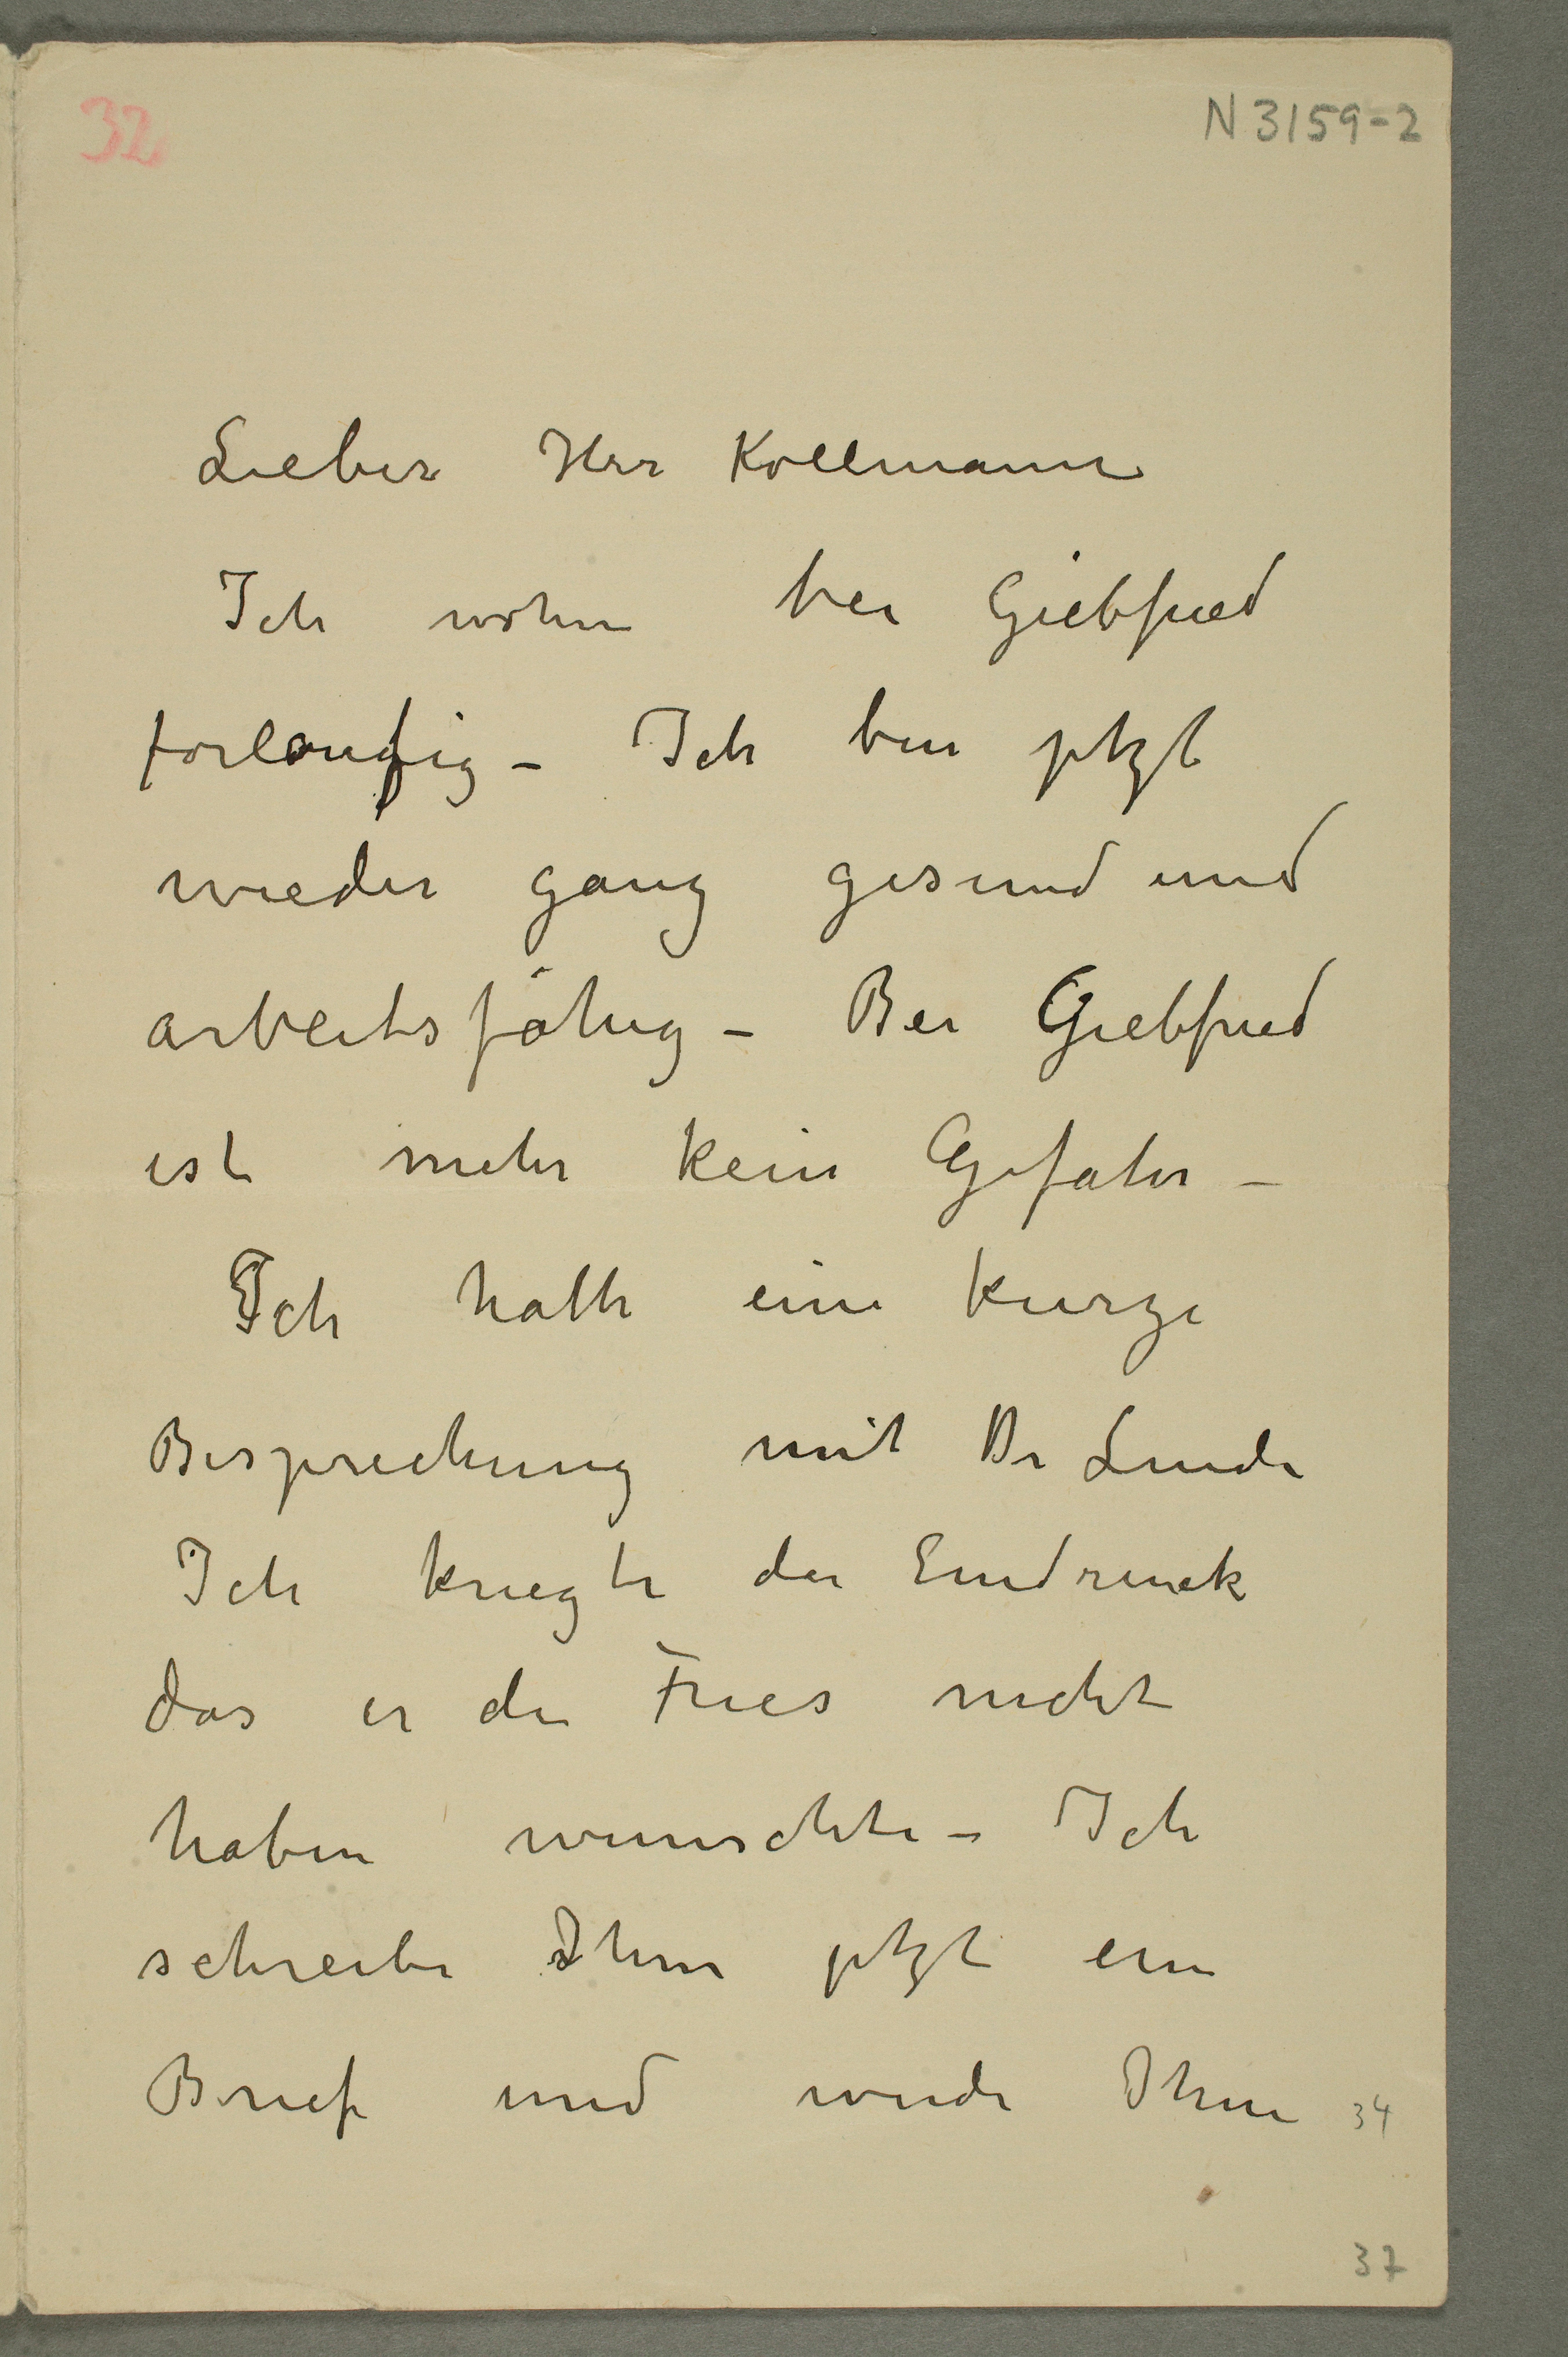 32
N 3159-2
Lieber Herr Kollmann
Ich wohne bei Giebfried
forlaufig – Ich bin jetzt
wieder ganz gesund und
arbeitsfähig – Bei Giebfried
ist mehr kein Gefahr –
Ich hatte eine kurze
Besprechung mit Dr Linde
Ich kriegte der Eindruck
das er den Fries nicht
haben wunschte – Ich
schreibe Ihm jetzt ein
Brief und werde Ihm
34
37